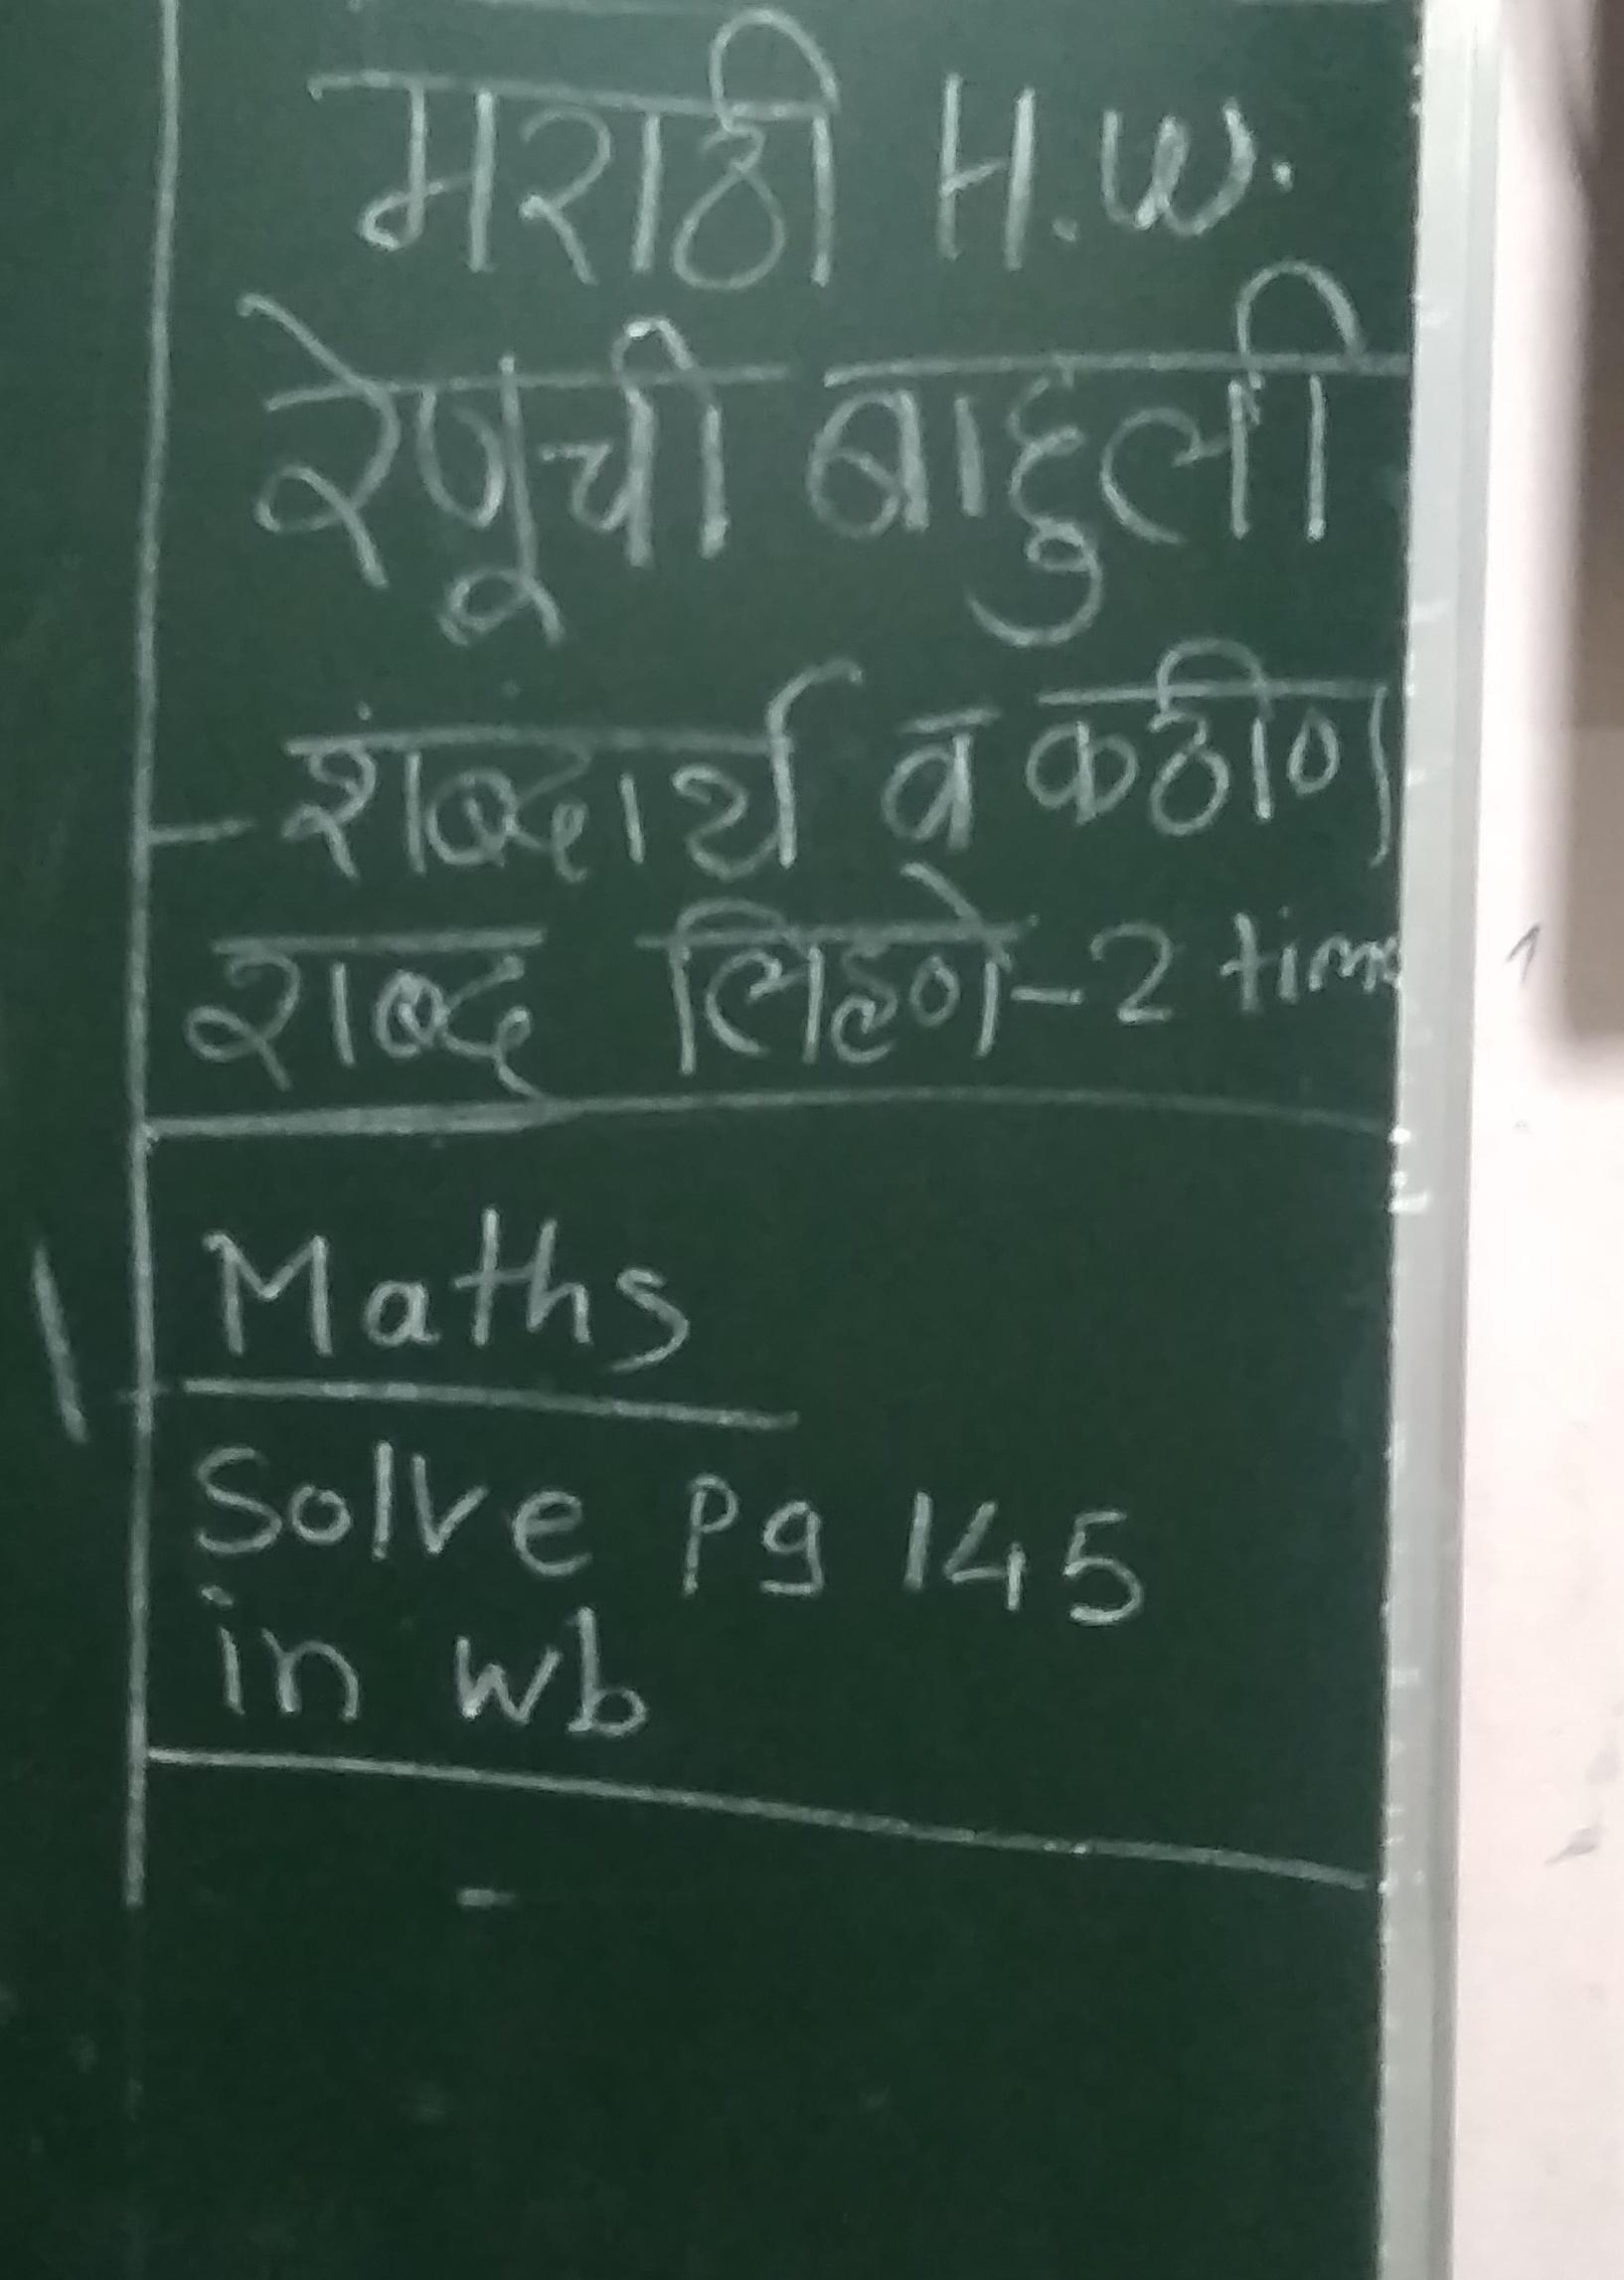 मराठी H.W.
रेणूची बाहुली
- शब्दार्थ व कठीण
शब्द लिहणे - 2 time
Maths
Solve Pg 145
in wb